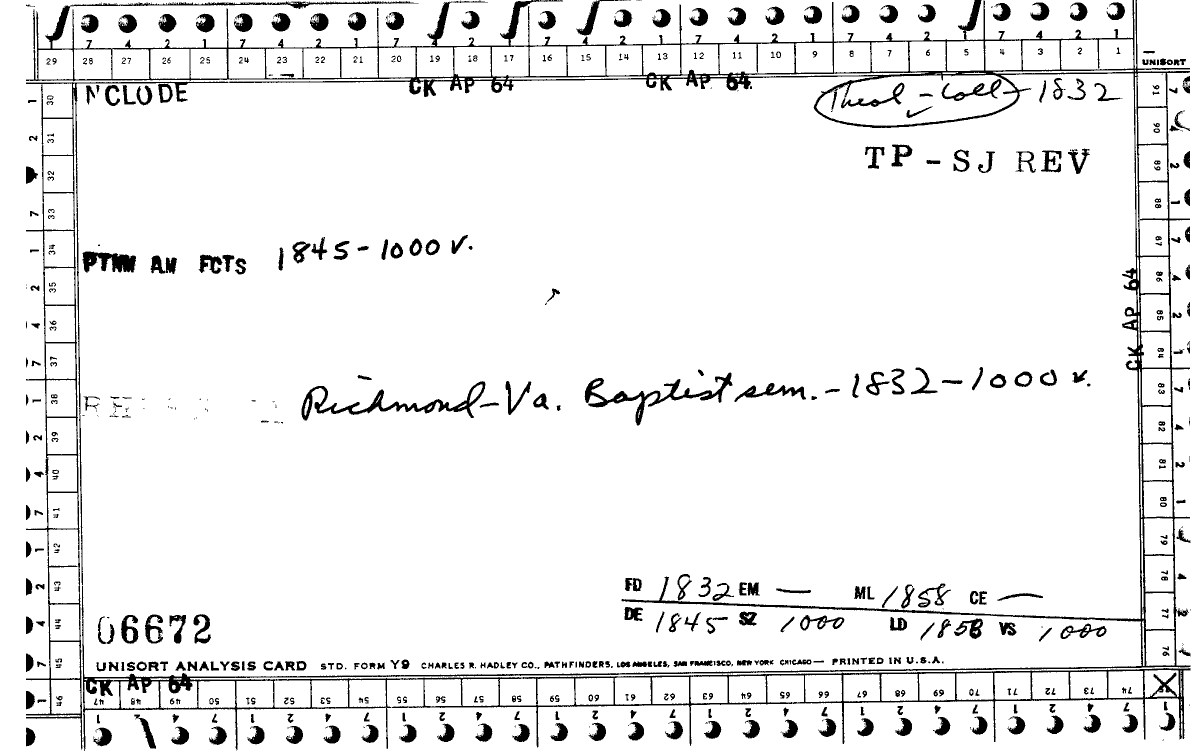 7 4 2 1 7 4 2 1 7 4 2 1 7 4 2 1 7 4 2 1 7 4 2 1 7 4 2 1
29 28 27 26 25 24 23 22 21 20 19 18 17 16 15 14 13 12 11 10 9 8 7 6 5 4 3 2 1
UNISORT
NCLUDE CK AP 64 CK AP 64 Theol - Coll - 1832
TP - SJ REV
PTNM AM FCTS 1845 - 1000 v.
CK AP 64
Richmond - Va. Baptist sem. - 1832 - 1000 v.
FD 1832 EM — ML 1858 CE —
DE 1845 SZ 1000 LD 1858 VS 1000
06672
UNISORT ANALYSIS CARD STD. FORM Y9 CHARLES R. HADLEY CO., PATHFINDERS, LOS ANGELES, SAN FRANCISCO, NEW YORK CHICAGO — PRINTED IN U.S.A.
CK AP 64
30 31 32 33 34 35 36 37 38 39 40 41 42 43 44 45 46
47 48 49 50 51 52 53 54 55 56 57 58 59 60 61 62 63 64 65 66 67 68 69 70 71 72 73 74
76 77 78 79 80 81 82 83 84 85 86 87 88 89 90 91